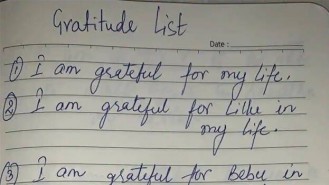 Gratitude List
Date:
① I am grateful for my life.
② I am grateful for Lille in
my life.
③ I am grateful for Bebu in